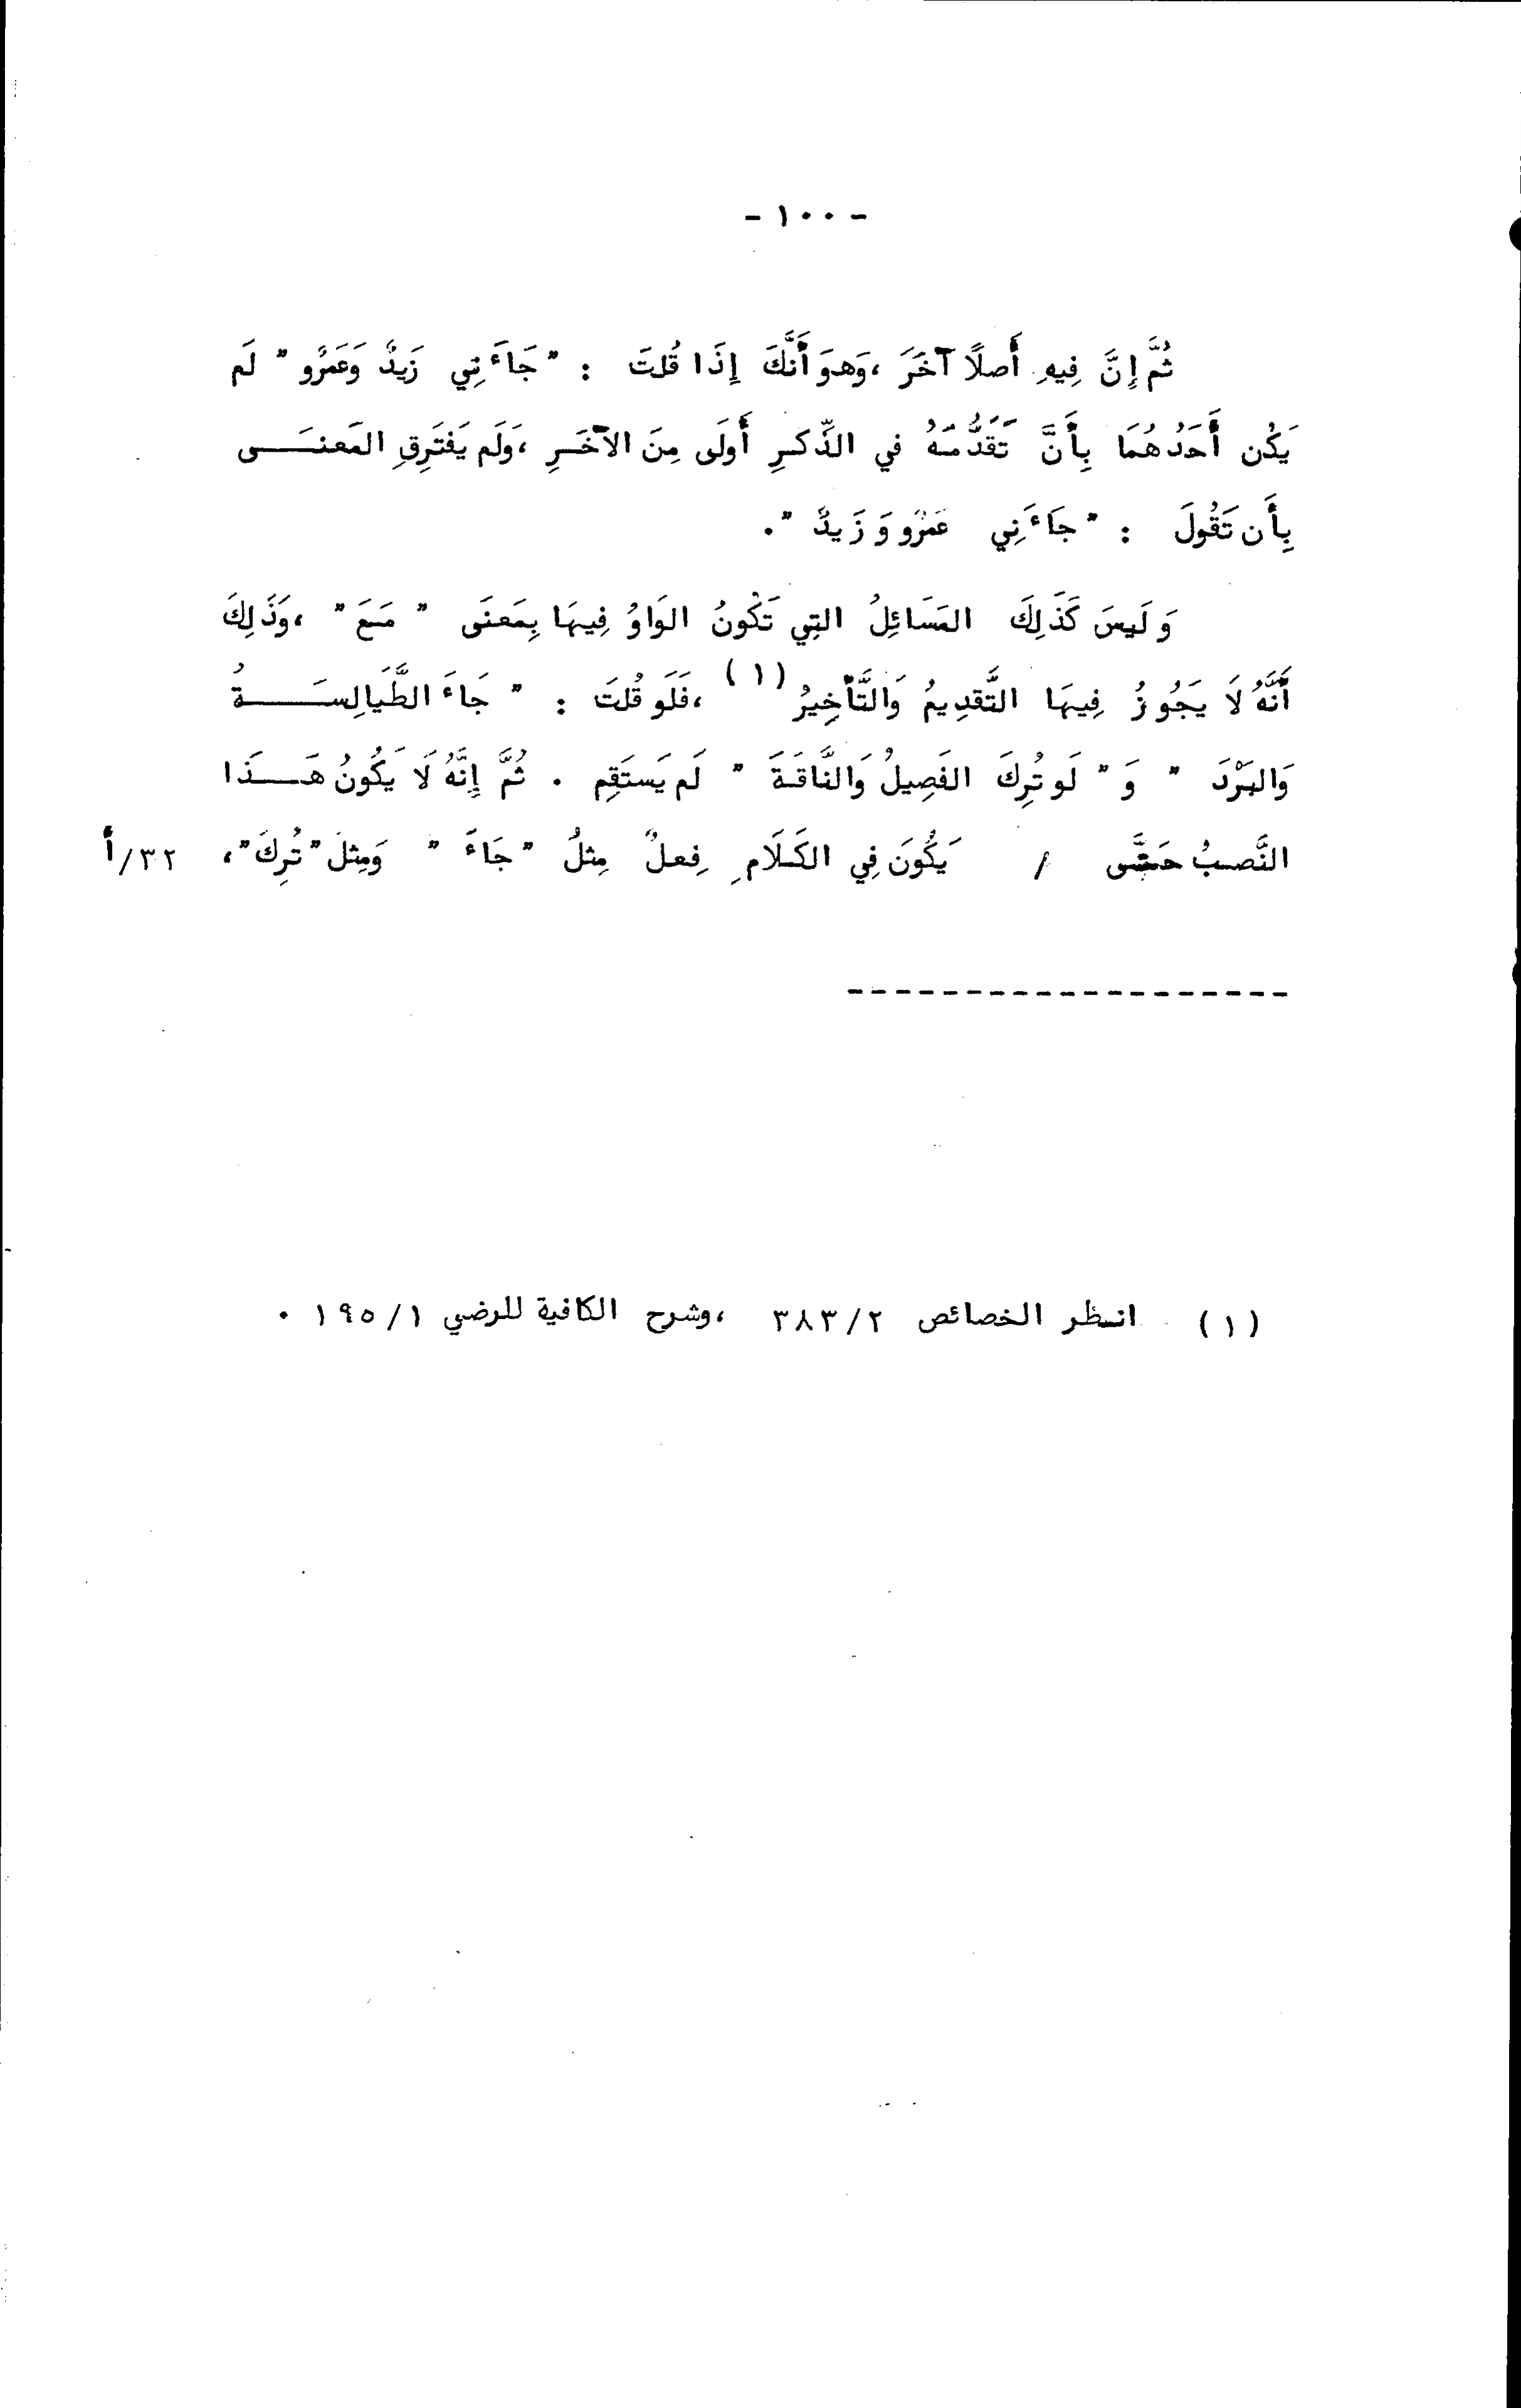 - ١٠٠ -
ثُمَّ إِنَّ فِيهِ أَصلًا آخَرَ ،وَهوَ أَنَّكَ إِذَا قُلتَ : " جَاءَنِي زَيدٌ وَعَمرٌو " لَم
يَكُن أَحَدُهُمَا بِأَنَّ تَقَدُّمَهُ في الذِّكرِ أَولَى مِنَ الآخَرِ ،وَلَم يَفتَرِقِ المَعنَـــى
بِأَن تَقُولَ : " جَاءَنِي عَمرٌو وَ زَيدٌ ".
وَ لَيسَ كَذَلِكَ المَسَائِلُ التِي تَكُونُ الوَاوُ فِيهَا بِمَعنَى " مَعَ " ،وَذَلِكَ
أَنَّهُ لَا يَجُوزُ فِيهَا التَّقدِيمُ وَالتَّأخِيرُ (١) ،فَلَو قُلتَ : " جَاءَ الطَّيَالِسَـــةُ
وَالبَرْدَ " وَ " لَو تُرِكَ الفَصِيلُ وَالنَّاقَةَ " لَم يَستَقِم . ثُمَّ إِنَّهُ لَا يَكُونُ هَـــذَا
النَّصبُ حَتَّى / يَكُونَ فِي الكَلَامِ فِعلٌ مِثلُ " جَاءَ " وَمِثلُ " تُرِكَ "، ٣٢/أ
(١) انظر الخصائص ٣٨٣/٢ ،وشرح الكافية للرضي ١٩٥/١ .